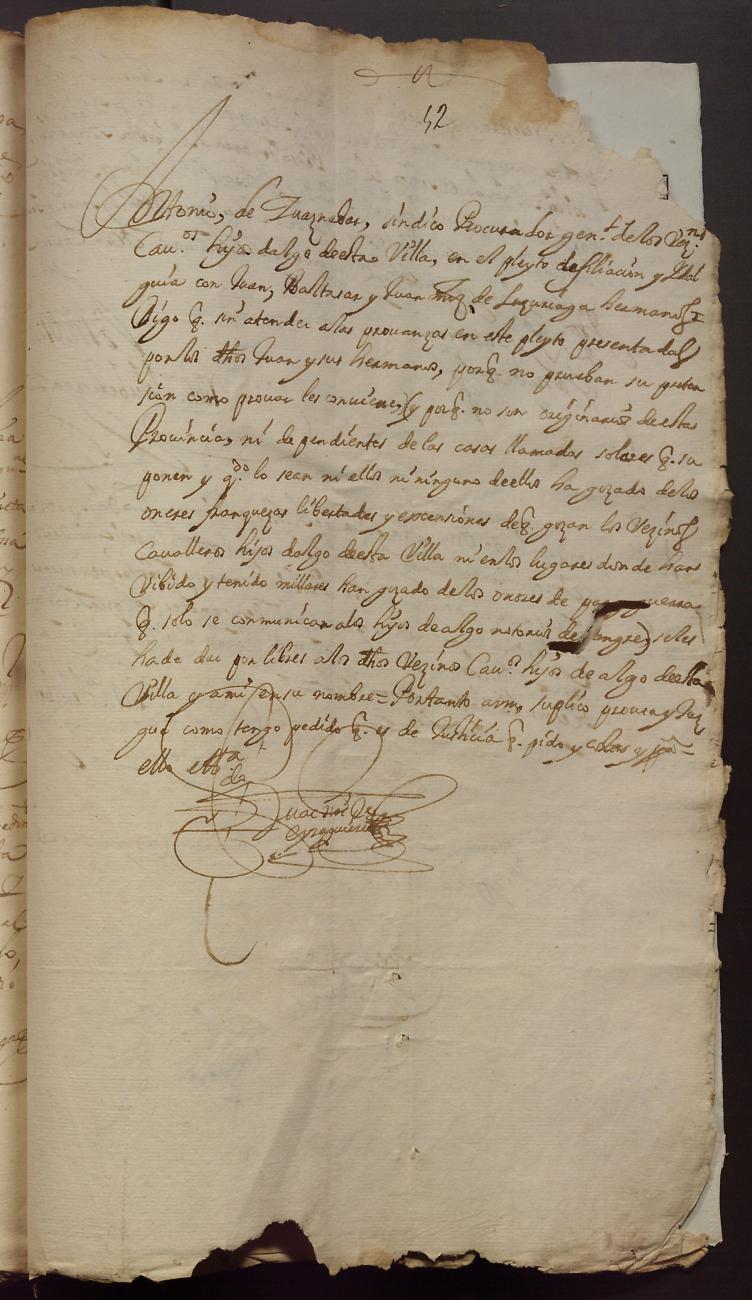 52
Antonio, de Zuaznabar, síndico Procurador gen.l de los Vez.nos
Cau.os hijos dalgo desta Villa, en el pleyto de filiación y Idal
guia con Juan, Baltasar y Juan mrz de Luzuriaga hermanos =
Digo q. sin atender a las prouanzas en este pleyto presentadas
por los dhos Juan y sus hermanos, porq. no prueban su preten
sión como prouar les conuiene, y porq. no son originarios desta
Prouincia, ni dependientes de las casas llamadas solares q. su
ponen y q.do lo sean ni ellos ni ninguno dellos ha gozado de los
onores franquezas libertades y excensiones de q. gozan los Vezinos
Caualleros hijos dalgo desta Villa ni en los lugares donde han
Vibido y tenido millares han gozado de los onores de paz y guerra
q. solo se conmunican a los hijos de algo notorios de sangre, se les
ha de dar por libres a los dhos Vezinos Cau.os hijos de algo desta
Villa y a mi en su nombre = Portanto a vm suplico prouea y Juz
gue como tengo pedido q. es de Justicia q. pido y costas y pa =
ello etta